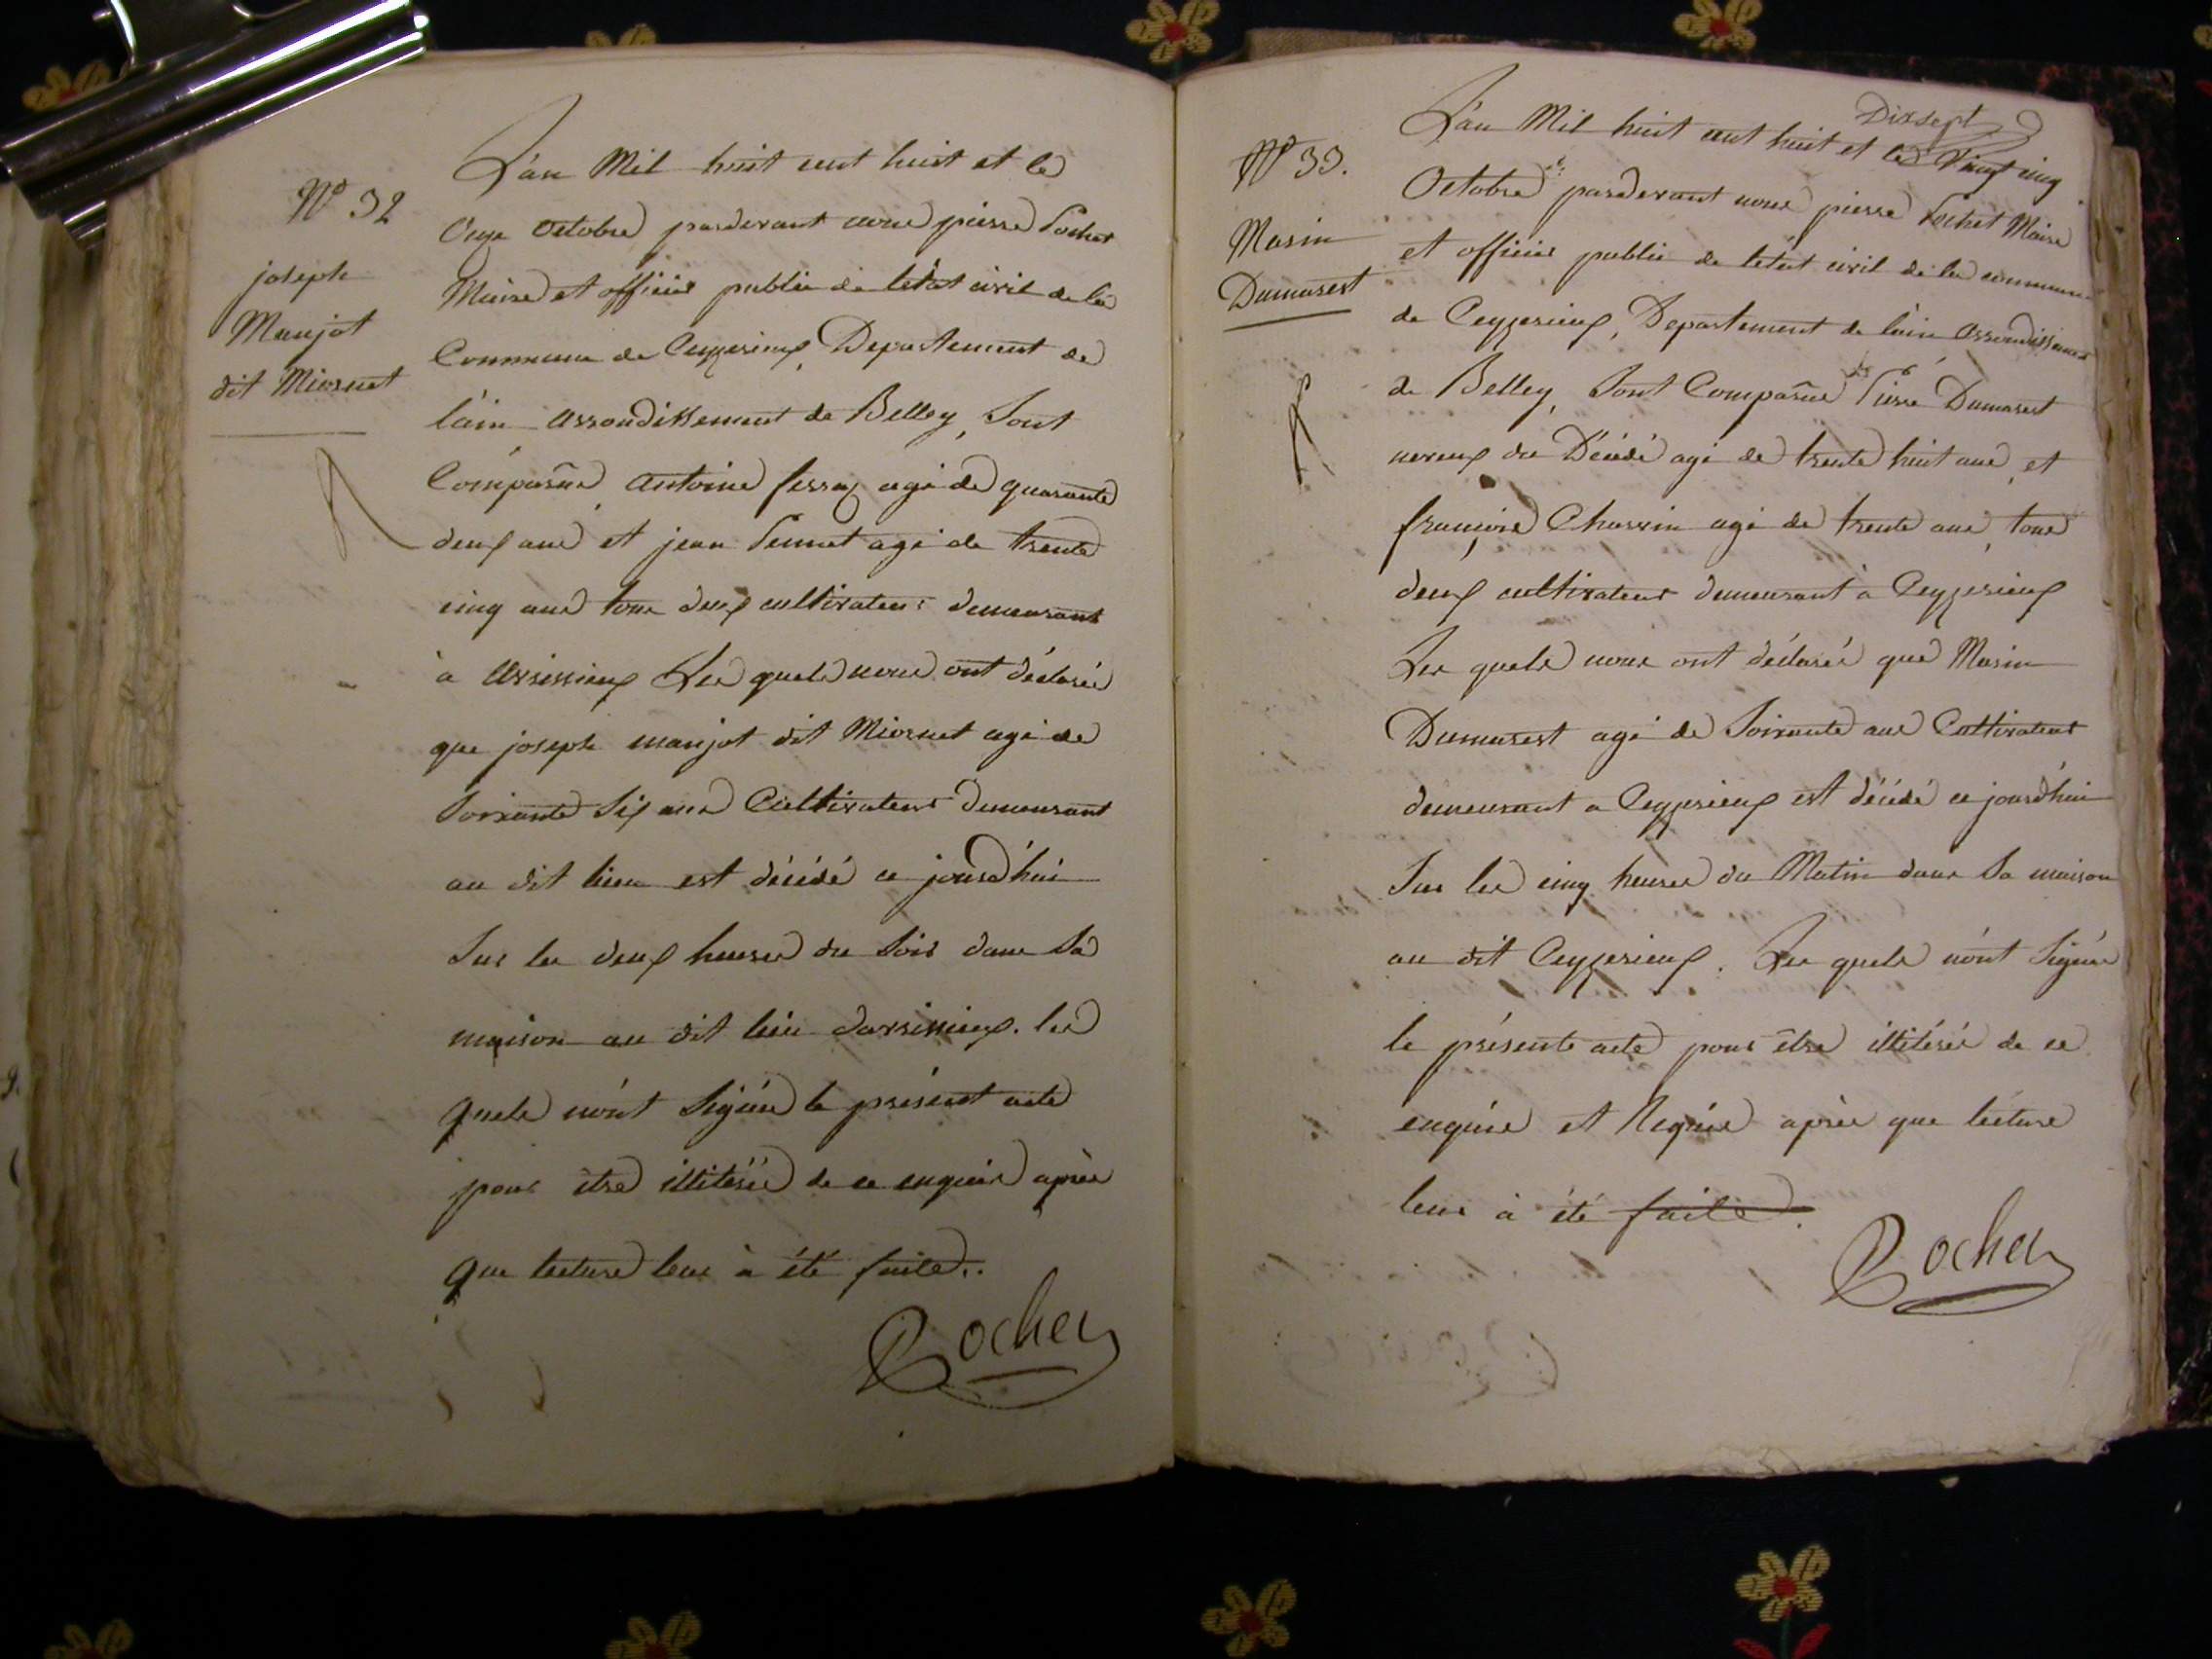 N° 32
joseph
Maujot
dit Miornet
L'an Mil huit cent huit et le
Onze Octobre pardevant nous pierre Pochet
Maire et officier public de letat civil de la
Commune de Ceyzerieux, Departement de
l'ain arrondissement de Belley, Sont
Comparus, antoine agé de quarante
deux ans et jean agé de trente
cinq ans tous deux cultivateurs demeurant
à Les quels nous ont déclarés
que joseph maujot dit Miornet agé de
Soixante Six ans Cultivateur demeurant
au dit lieu est décédé ce jourd'hui
Sur les deux heures du Soir dans Sa
maison au dit lieu les
quels n'ont Signés le présent acte
pour être illiterés de ce enquis après
que lecture leur à été faite..
Pochet
N° 33.
Marin
Dumarest
Dixsept
L'an Mil huit cent huit et le Vingt cinq
Octobre pardevant nous pierre Pochet Maire
et officier public de létat civil de la commune
de Ceyzerieux, Departement de l'ain arrondissement
de Belley, Sont Comparus Pierre Dumarest
neveux du Décédé agé de trente huit ans, et
françois Charvin agé de trente ans, tous
deux cultivateurs demeurant à Ceyzerieux
Les quels nous ont déclarés que Marin
Dumarest agé de Soixante ans Cultivateur
demeurant a Ceyzerieux est décédé ce jourd'hui
Sur les cinq heures du Matin dans Sa maison
au dit Ceyzerieux. Les quels n'ont Signés
le présente acte pour être illitérés de ce
enquis et Requis après que lecture
leur à été faite.
Pochet